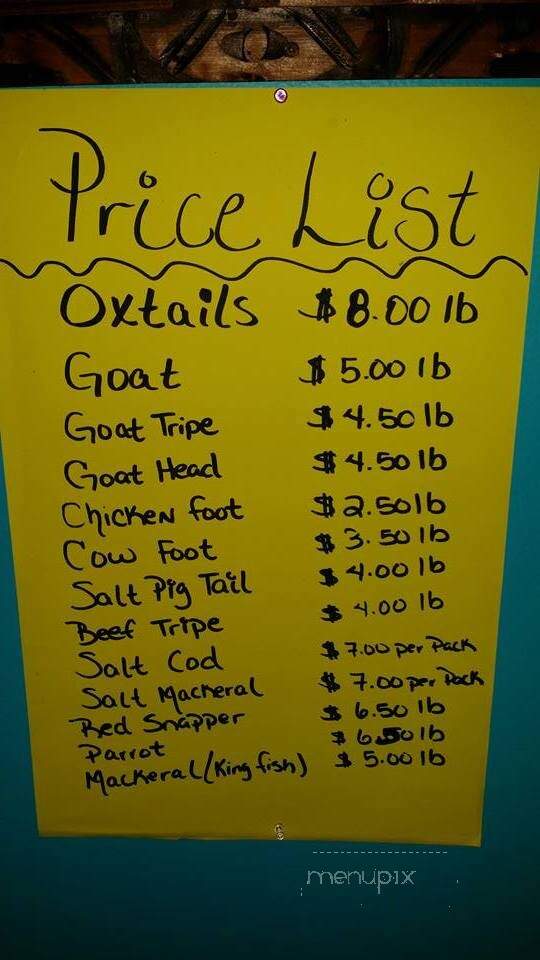 Price List
Oxtails $8.00 lb
Goat $5.00 lb
Goat Tripe $4.50 lb
Goat Head $4.50 lb
Chicken foot $2.50 lb
Cow Foot $3.50 lb
Salt Pig Tail $4.00 lb
Beef Tripe $4.00 lb
Salt Cod $7.00 per Pack
Salt Mackeral $7.00 per Pack
Red Snapper $6.50 lb
Parrot $6.50 lb
Mackeral (King fish) $5.00 lb
menupix